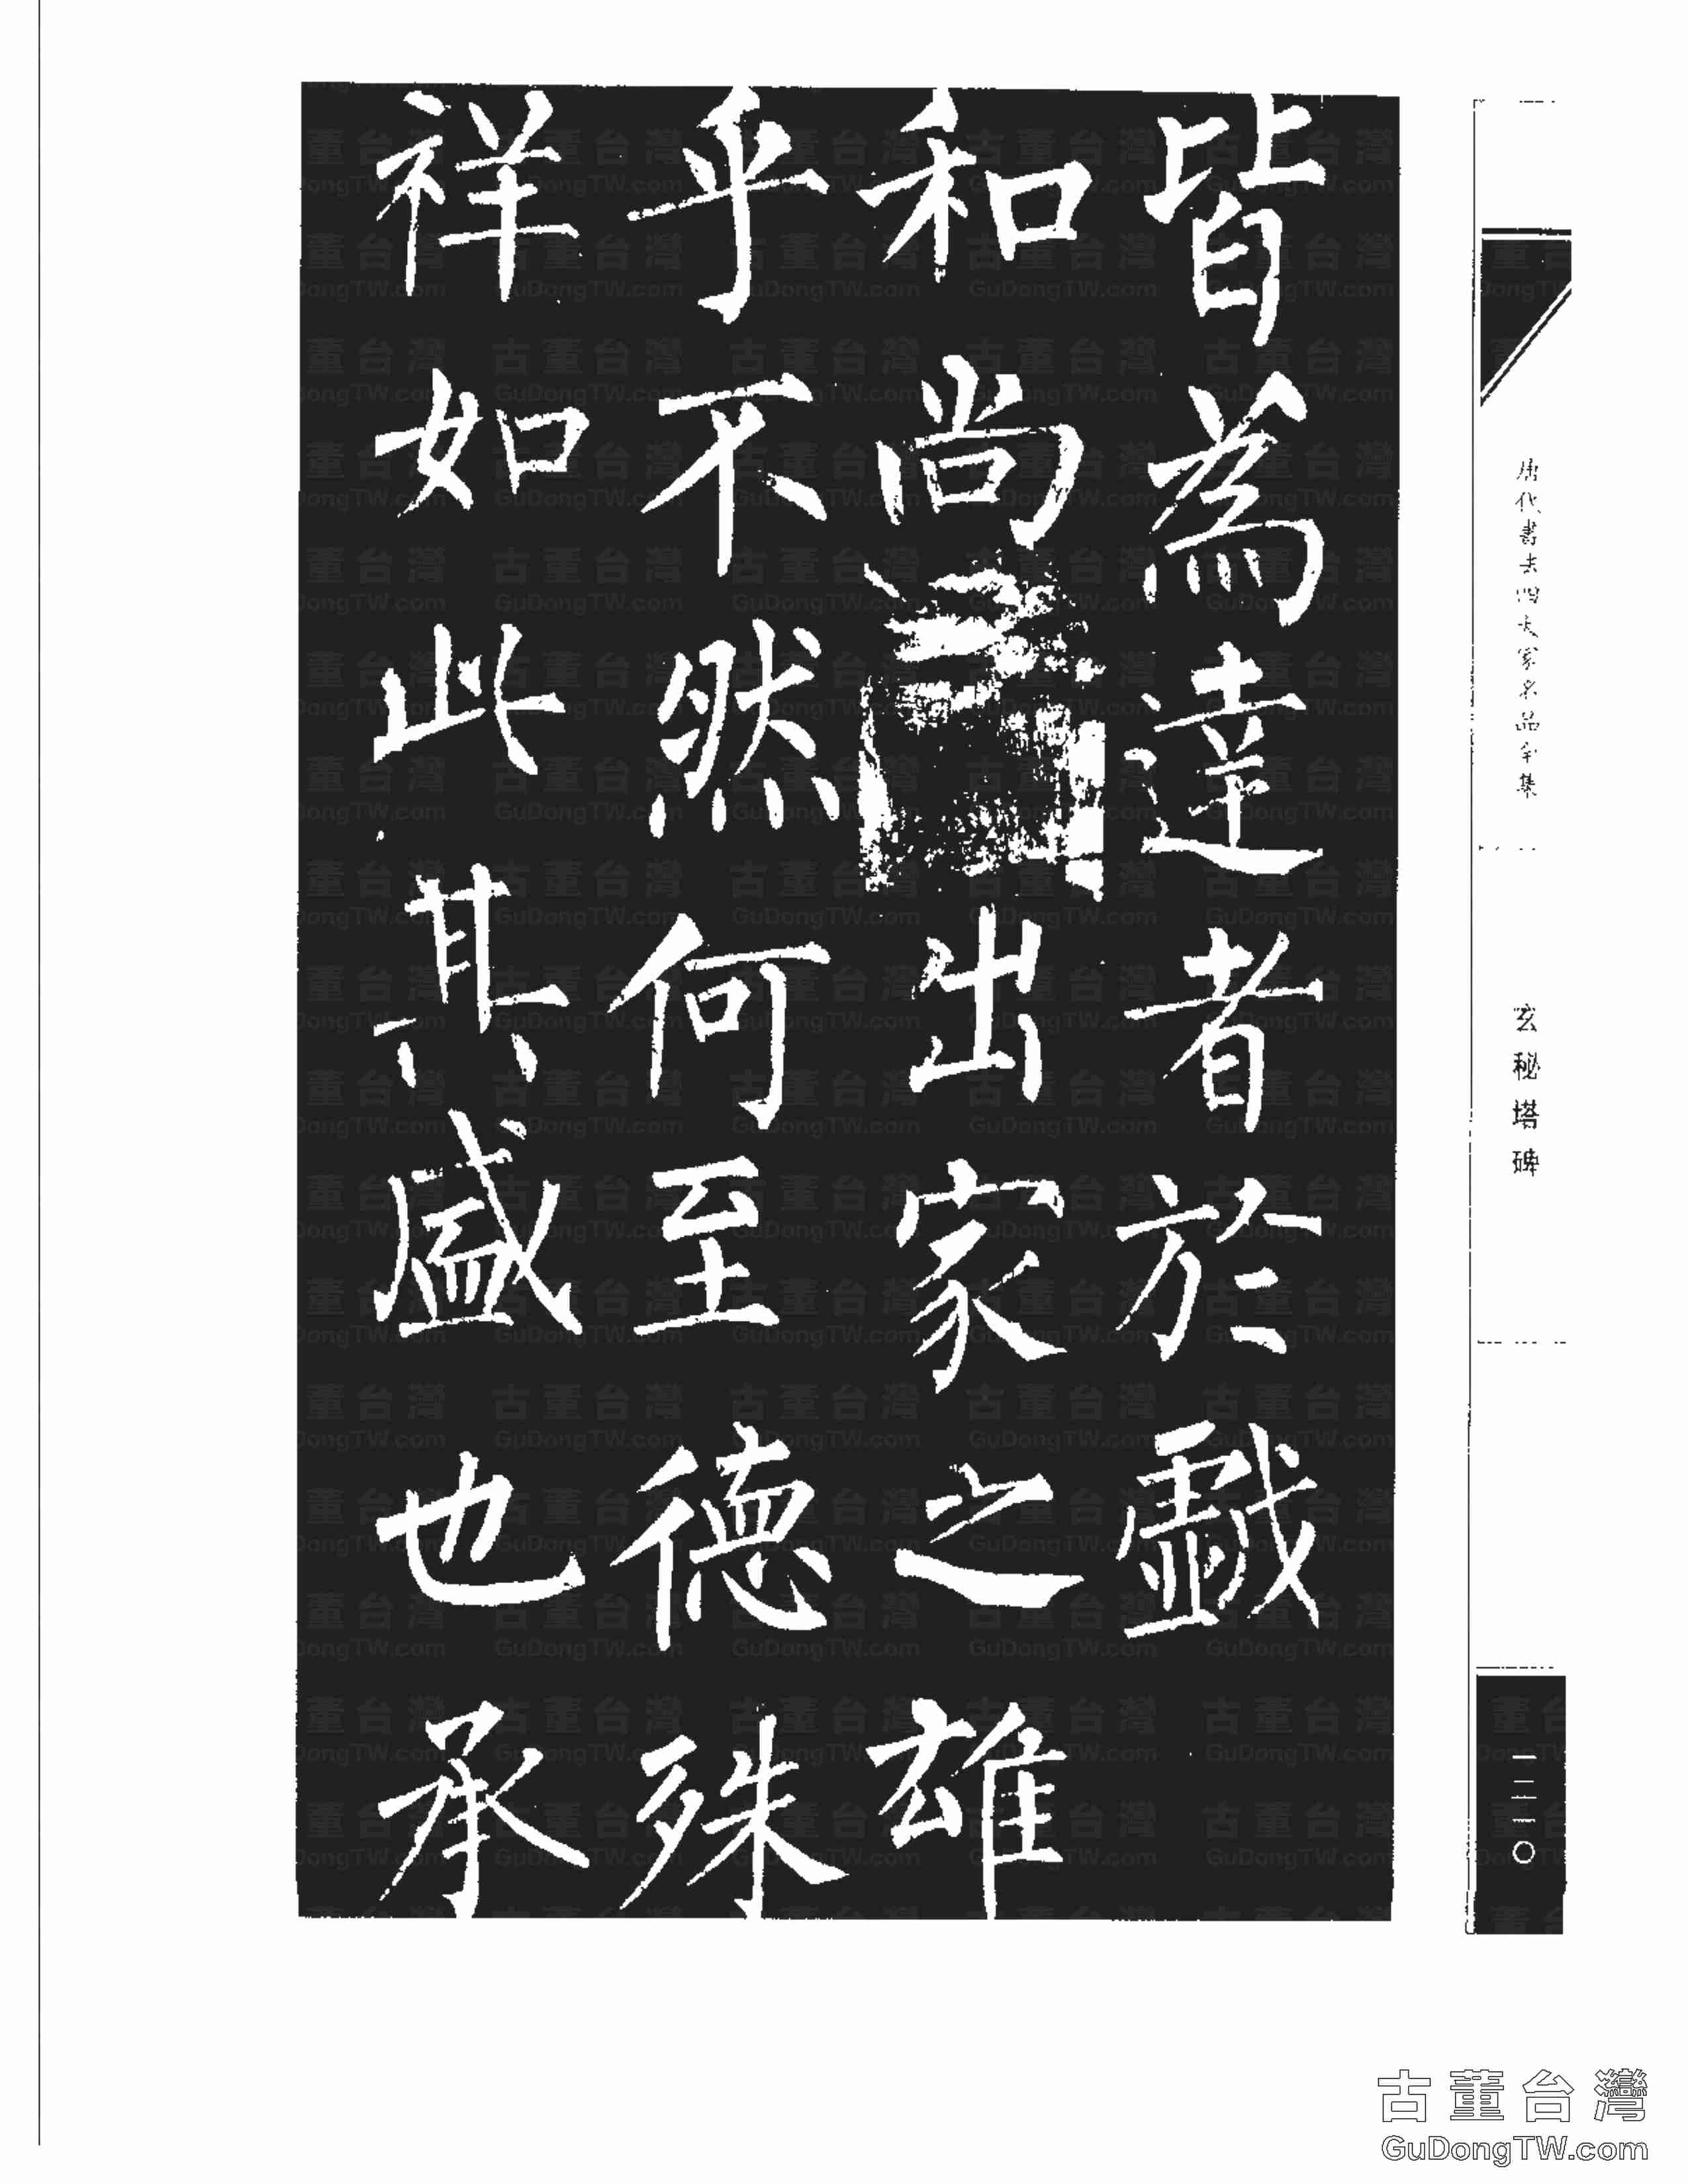 皆為達者於戲
和尚出家之雄
乎不然何至德殊
祥如此其盛也承
唐代書法四大家名品全集
玄秘塔碑
古董台灣
GuDongTW.com